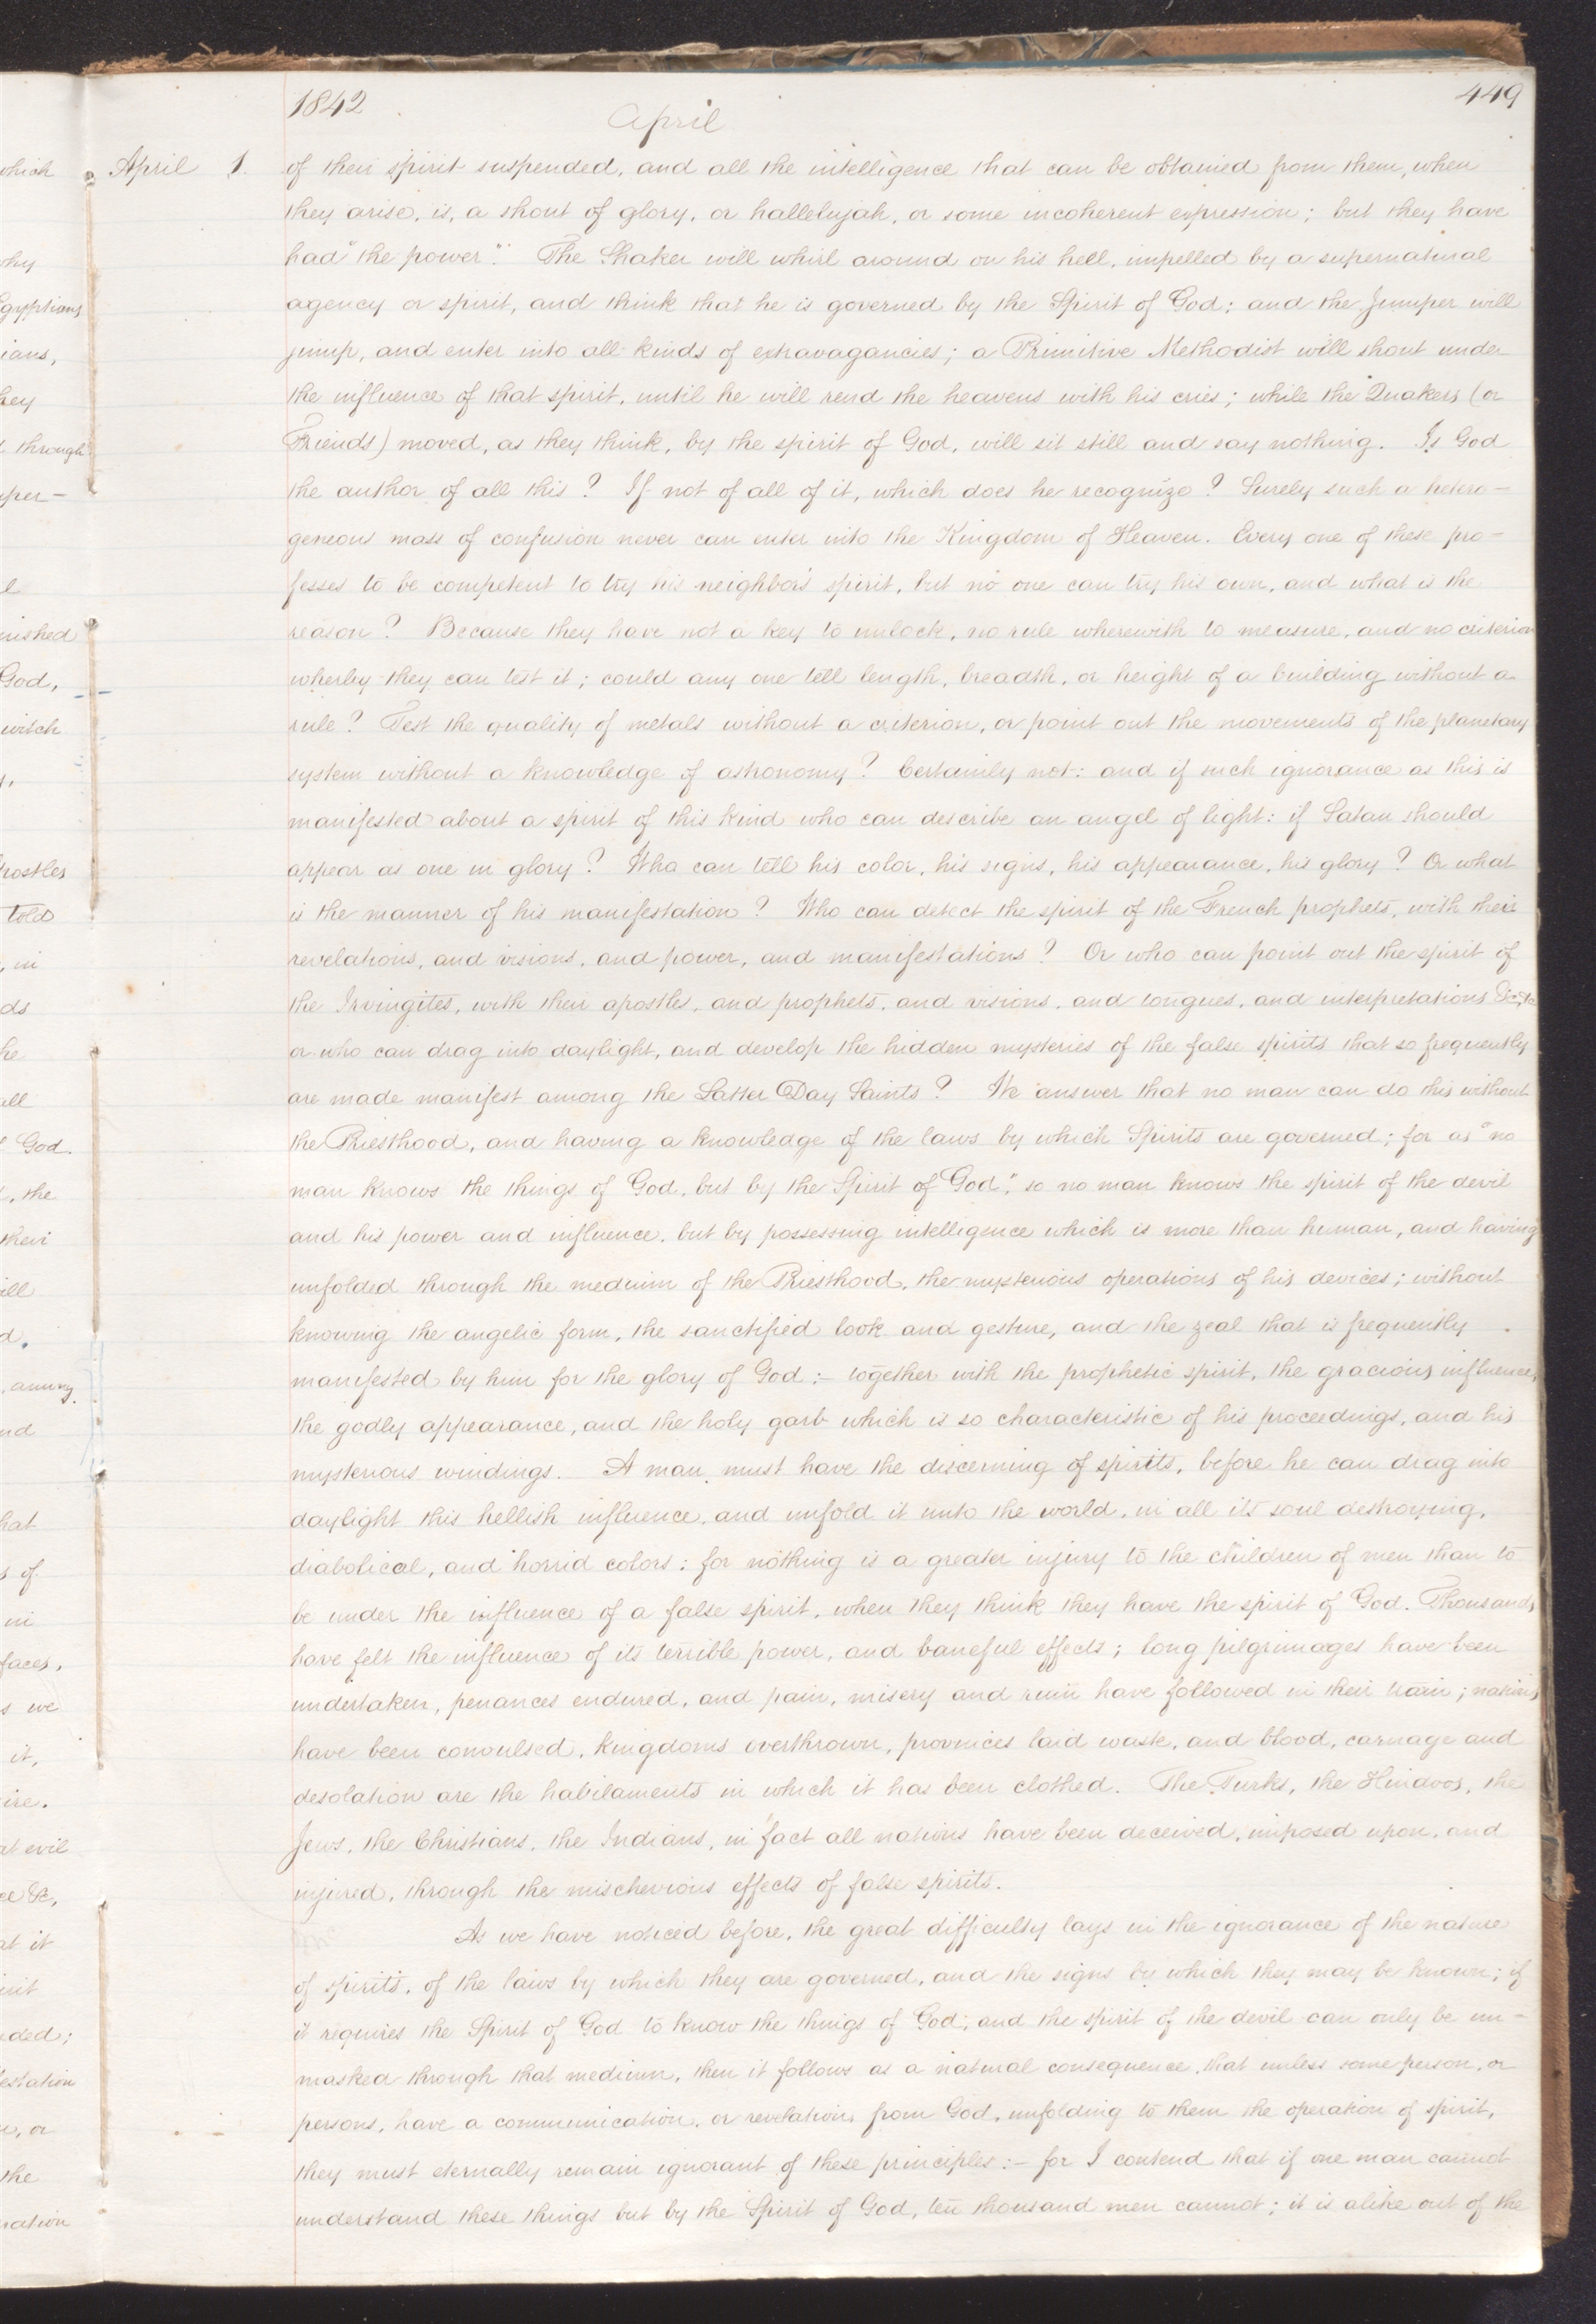 1842
449
April
April 1.
of their spirit suspended, and all the intelligence that can be obtained from them, when
they arise, is, a shout of glory, or hallelujah, or some incoherent expression; but they have
had "the power". The Shaker will whirl around on his hell, impelled by a supernatural
agency or spirit, and think that he is governed by the Spirit of God; and the Jumper will
jump, and enter into all kinds of extravagancies; a Primitive Methodist will shout under
the influence of that spirit, until he will rend the heavens with his cries; while the Quakers (or
Friends) moved, as they think, by the spirit of God, will sit still and say nothing. Is God
the author of all this? If not of all of it, which does he recognize? Surely such a hetro-
geneous mass of confusion never can enter into the Kingdom of Heaven. Every one of these pro-
fesses to be competent to try his neighbors spirit, but no one can try his own, and what is the
reason? Because they have not a key to unlock, no rule wherewith to measure, and no criterion
wherby they can test it; could any one tell length, breadth, or height of a building without a
rule? Test the quality of metals without a criterion, or point out the movements of the planetary
system without a knowledge of astronomy? Certainly not: and if such ignorance as this is
manifested about a spirit of this kind who can describe an angel of light: if Satan should
appear as one in glory? Who can tell his color, his signs, his appearance, his glory? Or what
is the manner of his manifestation? Who can detect the spirit of the French prophets, with their
revelations, and visions, and power, and manifestations? Or who can point out the spirit of
the Irvingites, with their apostles, and prophets, and visions, and tongues, and interpretations &c, &c
or who can drag into daylight, and develop the hidden mysteries of the false spirits that so frequently
are made manifest among the Latter Day Saints? We answer that no man can do this without
the Priesthood, and having a knowledge of the laws by which Spirits are governed; for as "no
man knows the things of God, but by the Spirit of God", so no man knows the spirit of the devil
and his power and influence, but by possessing intelligence which is more than human, and having
unfolded through the medium of the Priesthood, the mysterious operations of his devices; without
knowing the angelic form, the sanctified look and gesture, and the zeal that is frequently
manifested by him for the glory of God:- together with the prophetic spirit, the gracious influence,
the godly appearance, and the holy garb which is so characteristic of his proceedings, and his
mysterious windings. A man must have the discerning of spirits, before he can drag into
daylight this hellish influence, and unfold it unto the world, in all its soul destroying,
diabolical, and horrid colors: for nothing is a greater injury to the children of men than to
be under the influence of a false spirit, when they think they have the spirit of God. Thousands
have felt the influence of its terrible power, and baneful effects; long pilgrimages have been
undertaken, penances endured, and pain, misery and ruin have followed in their train; nations
have been convulsed, kingdoms overthrown, provinces laid waste, and blood, carnage and
desolation are the habilaments in which it has been clothed. The Turks, the Hindoos, the
Jews, the Christians, the Indians, in fact all nations have been deceived, imposed upon, and
injured, through the mischevious effects of false spirits.
As we have noticed before, the great difficulty lays in the ignorance of the nature
of spirits, of the laws by which they are governed, and the signs by which they may be known; if
it requires the Spirit of God to know the things of God; and the spirit of the devil can only be un-
masked through that medium, then it follows as a natural consequence, that unless some person, or
persons, have a communication, or revelation from God, unfolding to them the operation of spirit,
they must eternally remain ignorant of these principles:- for I contend that if one man cannot
understand these things but by the Spirit of God, ten thousand men cannot; it is alike out of the